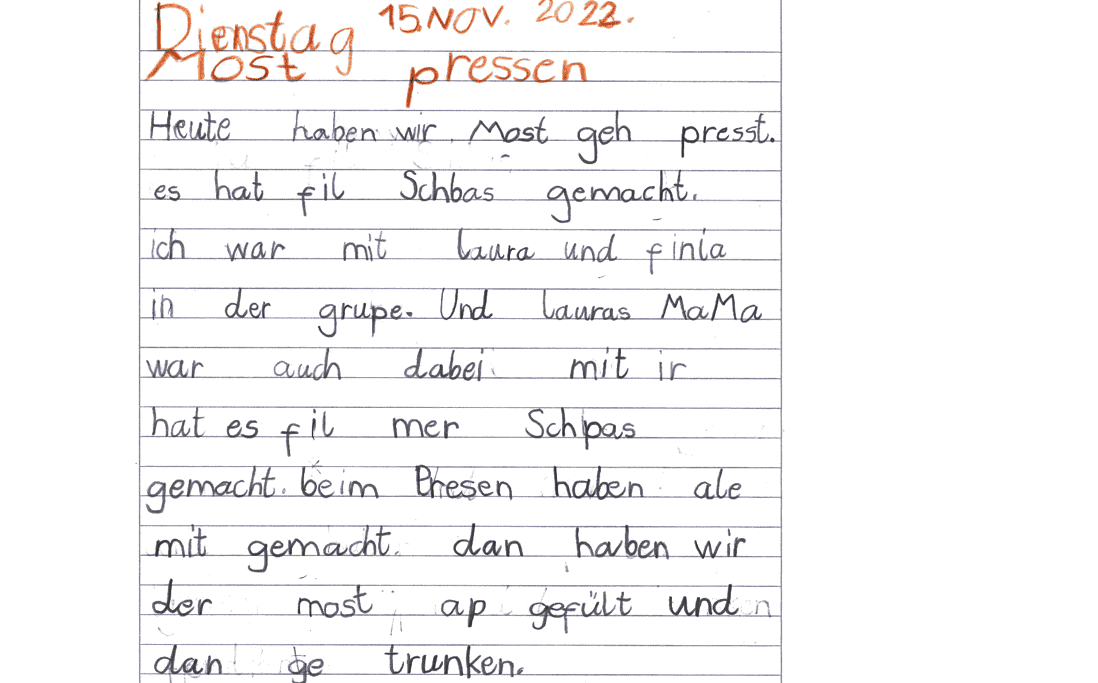 Dienstag 15. NOV. 2022.
Most pressen
Heute haben wir Most geh presst.
es hat fil Schbas gemacht.
ich war mit laura und finla
in der grupe. Und lauras MaMa
war auch dabei. mit ir
hat es fil mer Schpas
gemacht. beim Presen haben ale
mit gemacht. dan haben wir
der most ap gefült und
dan ge trunken.